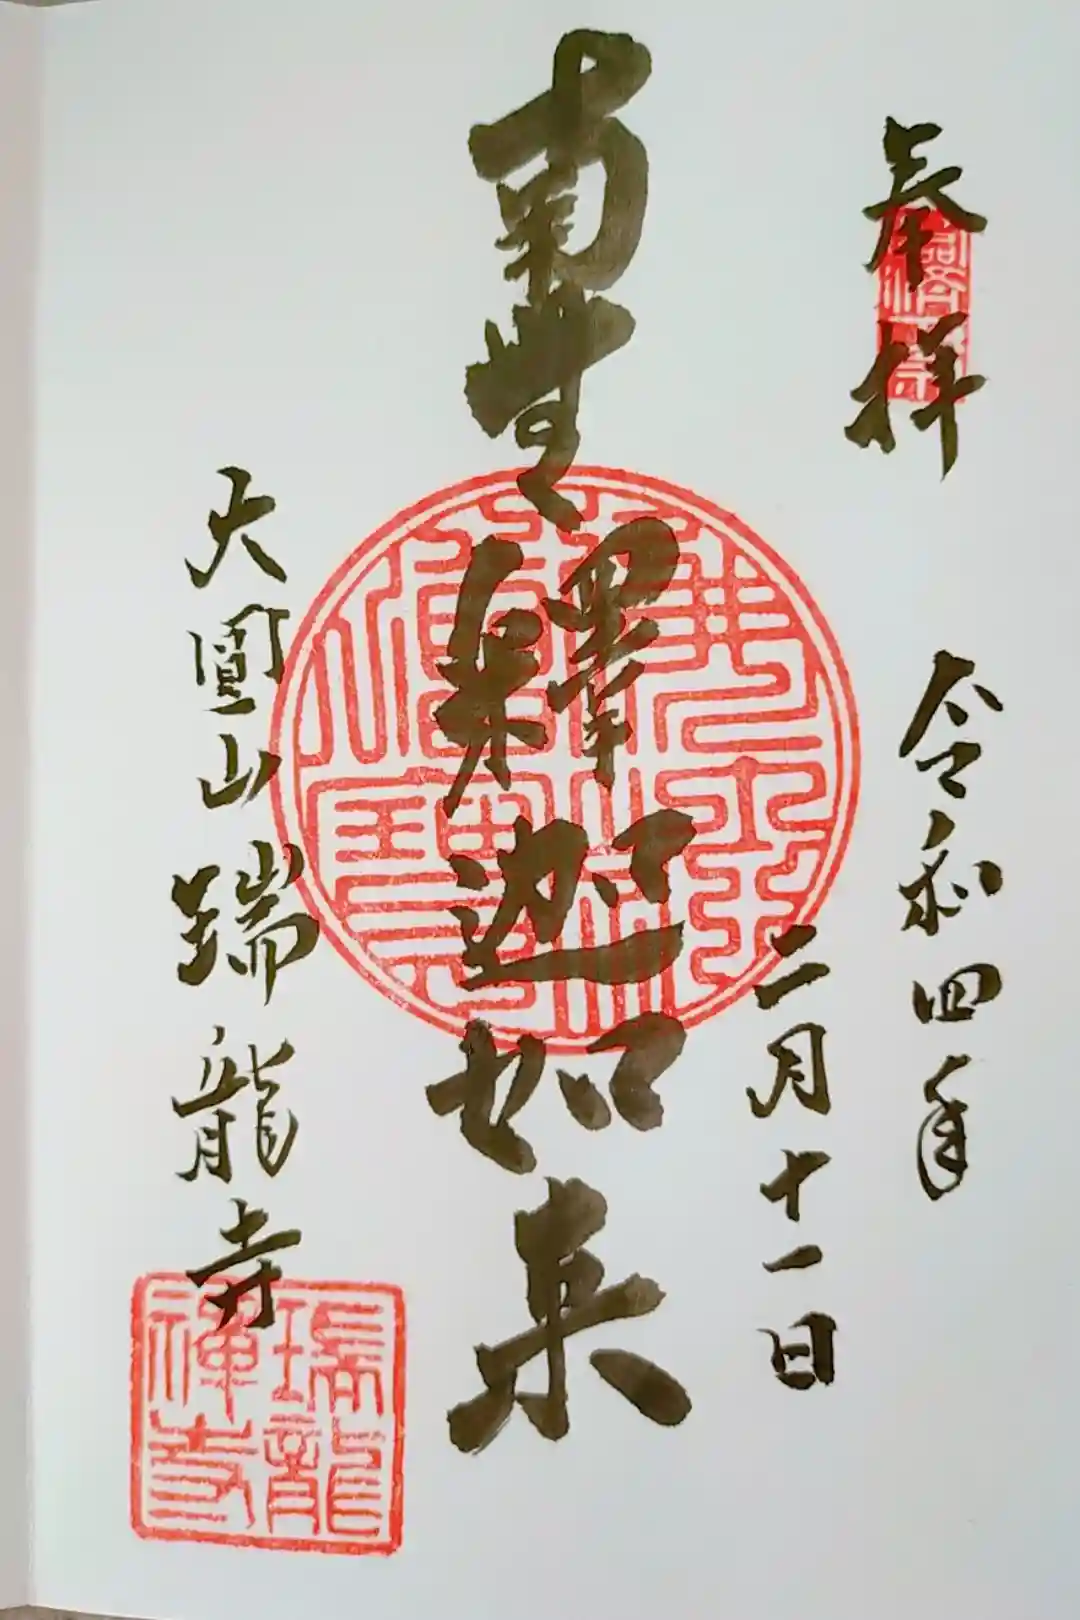 奉拝
令和四年
二月十一日
南無釋迦如来
大圓山瑞龍寺
瑞龍禅寺